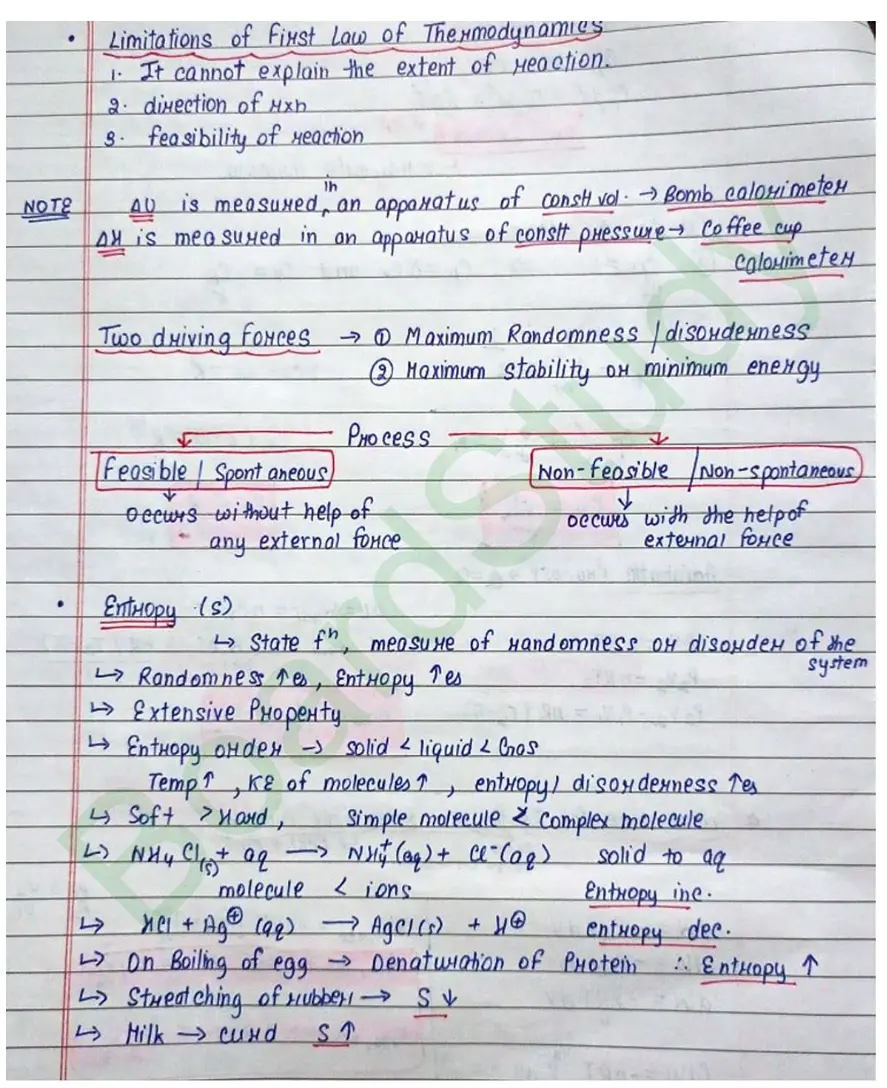 • Limitations of First Law of Thermodynamics
1. It cannot explain the extent of reaction.
2. direction of rxn
3. feasibility of reaction
NOTE ΔU is measured in an apparatus of constt vol. → Bomb calorimeter
ΔH is measured in an apparatus of constt pressure → Coffee cup
Calorimeter
Two driving forces → ① Maximum Randomness / disorderness
② Maximum stability or minimum energy
Process
Feasible / Spontaneous Non-feasible / Non-spontaneous
occurs without help of occurs with the help of
any external force external force
• Entropy (s)
↳ State fⁿ, measure of randomness or disorder of the
system
↳ Randomness ↑es, Entropy ↑es
↳ Extensive Property
↳ Entropy order → solid < liquid < Gas
Temp ↑, KE of molecules ↑, entropy / disorderness ↑es
↳ Soft > Hard, Simple molecule < Complex molecule
↳ NH₄Cl(s) + aq → NH₄⁺(aq) + Cl⁻(aq) solid to aq
molecule < ions Entropy inc.
↳ HCl + Ag⊕ (aq) → AgCl(s) + H⊕ entropy dec.
↳ On Boiling of egg → Denaturation of Protein ∴ Entropy ↑
↳ Streatching of rubber → S ↓
↳ Milk → curd S ↑
BoardStudy